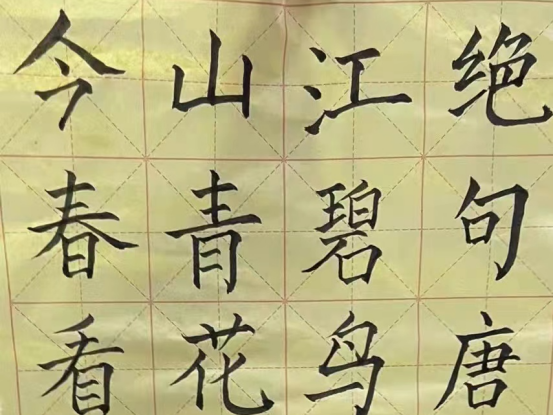 绝句唐
江碧鸟
山青花
今春看